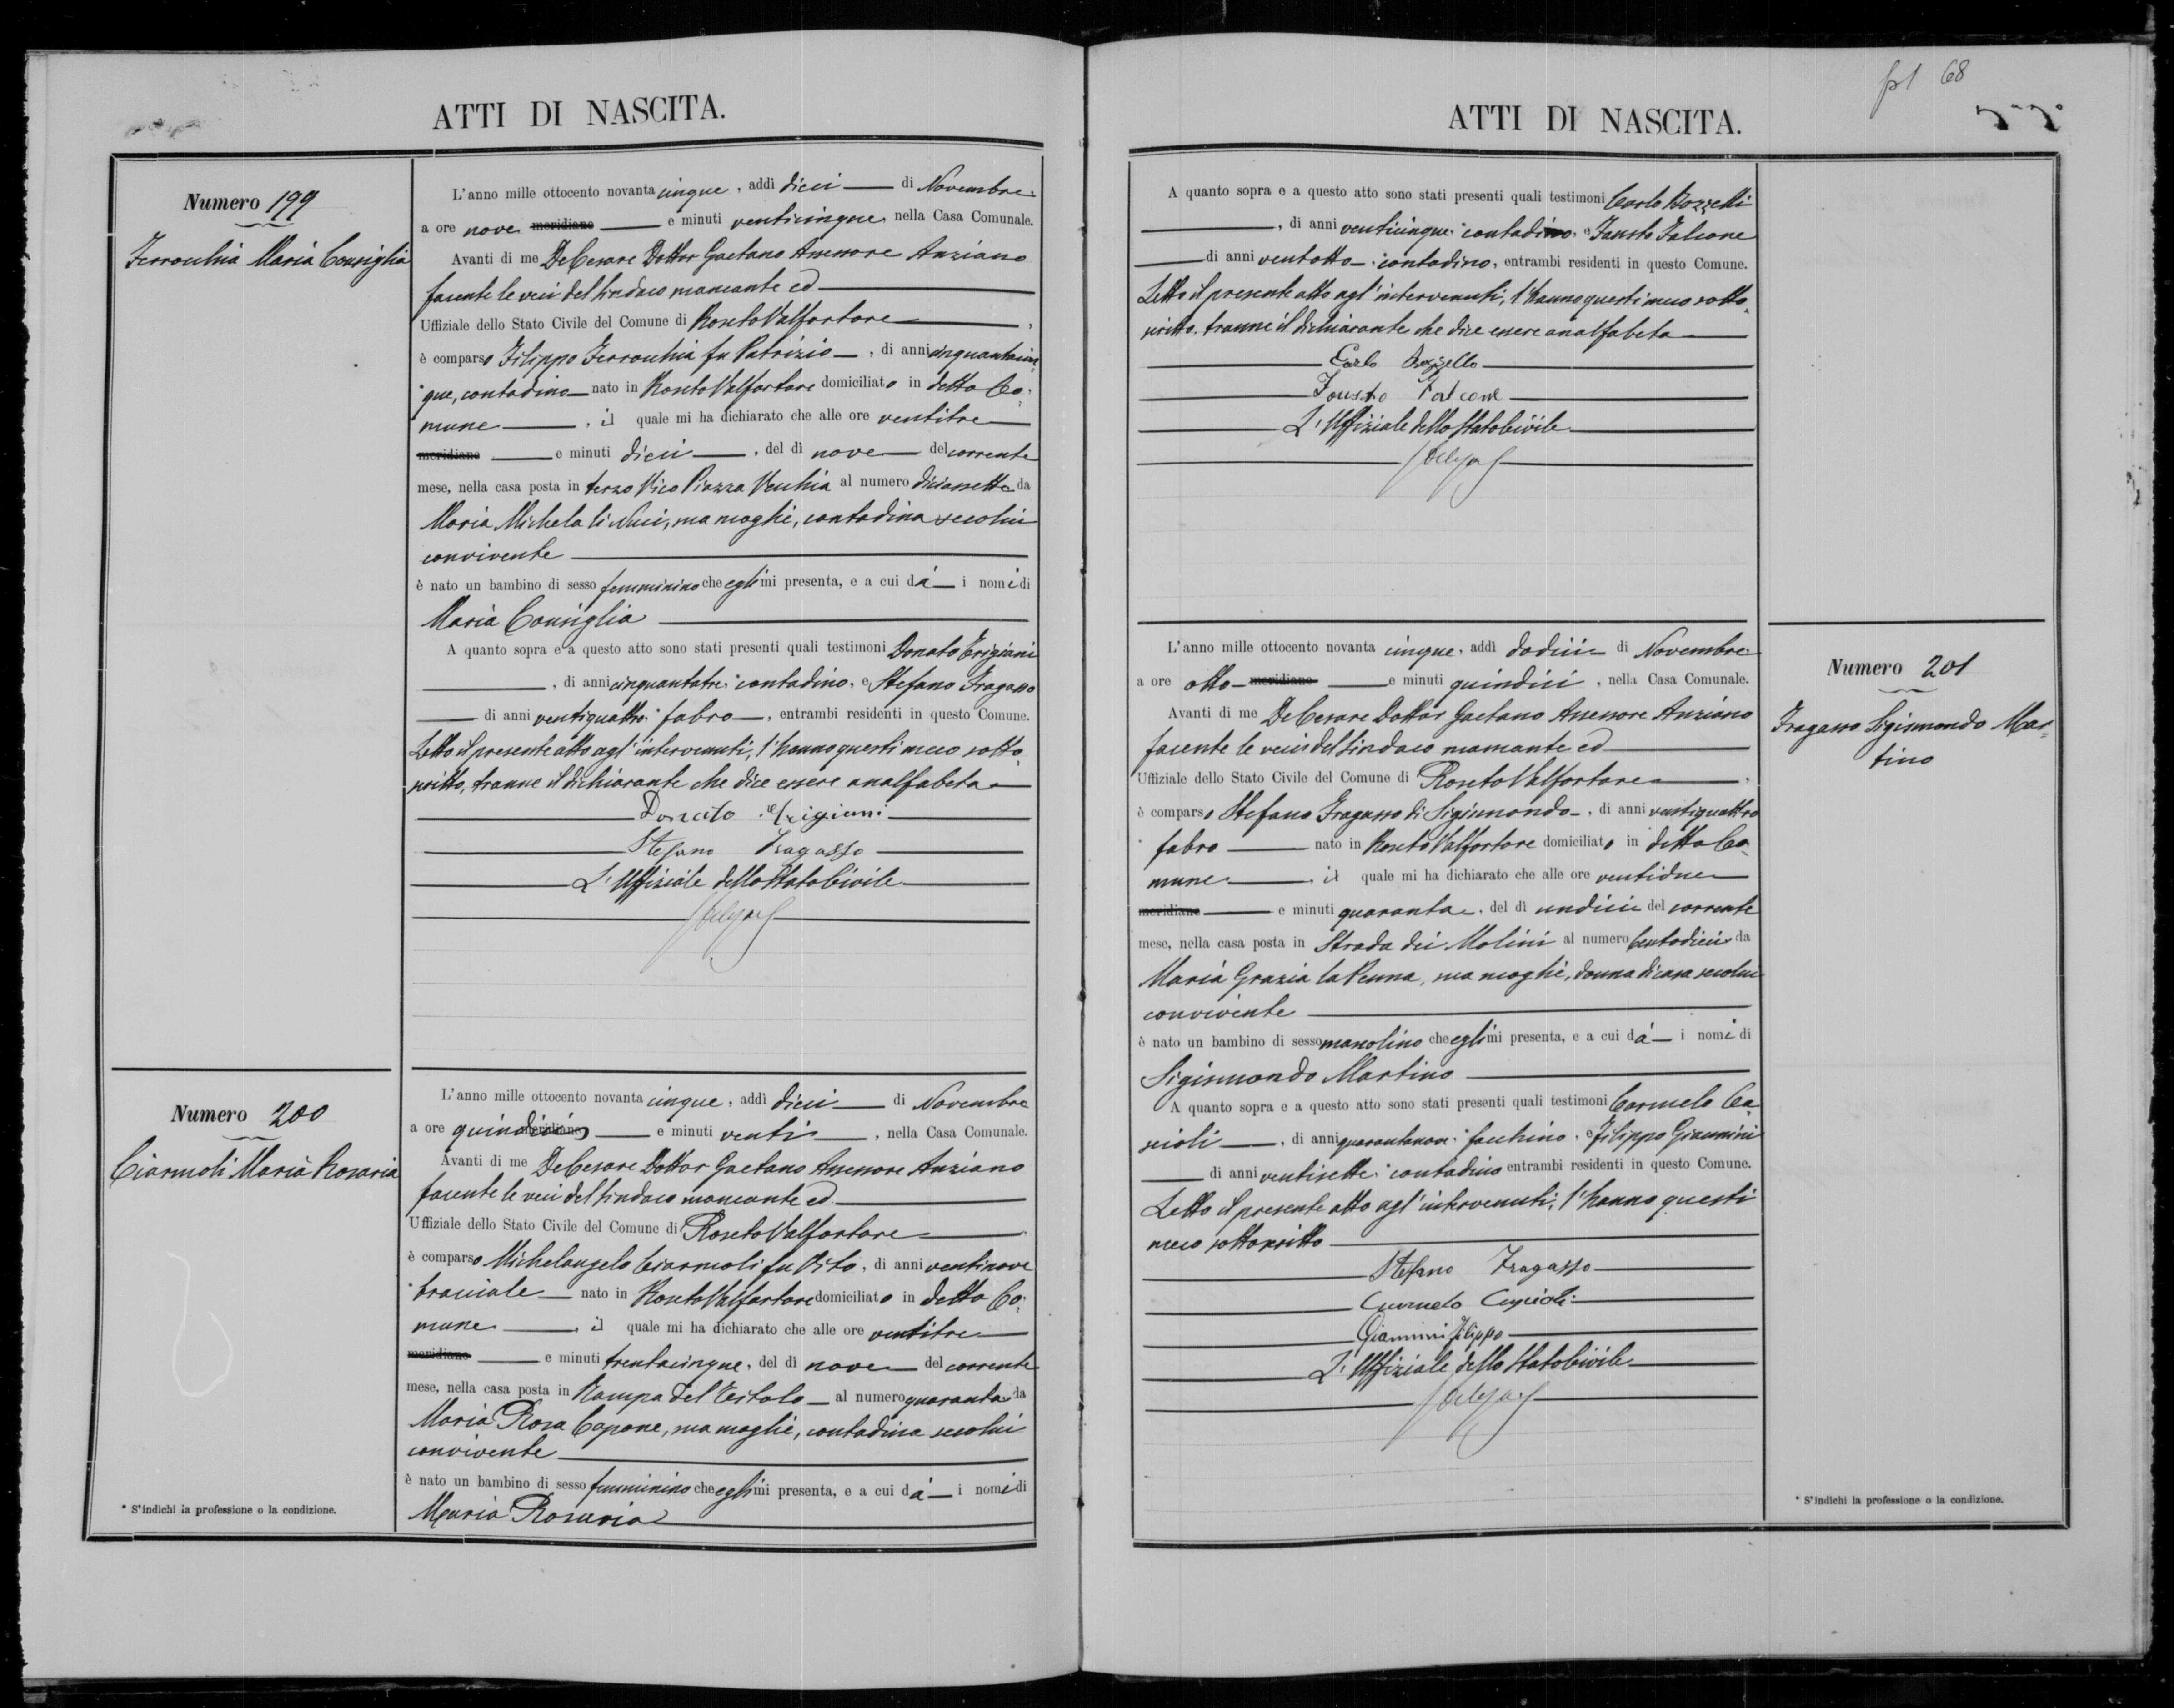 ATTI DI NASCITA.
Numero 199
Ferrocchia Maria Consiglia
L'anno mille ottocento novantacinque, addì dieci di Novembre
a ore nove meridiane e minuti venticinque, nella Casa Comunale.
Avanti di me DeCesare Dottor Gaetano Assessore Anziano
facente le veci del Sindaco mancante ed
Uffiziale dello Stato Civile del Comune di Roseto Valfortore,
è comparso Filippo Ferrocchia fu Patrizio, di anni cinquantacin
que, contadino nato in Roseto Valfortore domiciliato in detto Co-
mune, il quale mi ha dichiarato che alle ore ventitre
meridiane e minuti dieci, del dì nove del corrente
mese, nella casa posta in terzo Vico Piazza Vecchia al numero diciassette da
Maria Michela li Nuci, sua moglie, contadina secolui
convivente
è nato un bambino di sesso femminino che egli mi presenta, e a cui dà i nomi di
Maria Consiglia
A quanto sopra e a questo atto sono stati presenti quali testimoni Donato
, di anni cinquantatre, contadino, e Stefano Fragasso
di anni ventiquattro, fabro, entrambi residenti in questo Comune.
Letto il presente atto agl'intervenuti, l'hanno questi meco sotto-
scritto, tranne il dichiarante che dice essere analfabeta
Donato
Stefano Fragasso
L'Uffiziale dello Stato Civile
Numero 200
Ciarmoli Maria Rosaria
L'anno mille ottocento novantacinque, addì dieci di Novembre
a ore quindici meridiane e minuti venti, nella Casa Comunale.
Avanti di me DeCesare Dottor Gaetano Assessore Anziano
facente le veci del Sindaco mancante ed
Uffiziale dello Stato Civile del Comune di Roseto Valfortore
è comparso Michelangelo Ciarmoli fu Vito, di anni ventinove
bracciale nato in Roseto Valfortore domiciliato in detto Co-
mune, il quale mi ha dichiarato che alle ore ventitre
meridiane e minuti trentacinque, del dì nove del corrente
mese, nella casa posta in Rampa del al numero quaranta da
Maria Rosa Capone, sua moglie, contadina secolui
convivente
è nato un bambino di sesso femminino che egli mi presenta, e a cui dà i nomi di
Maria Rosaria
* S'indichi la professione o la condizione.
68
ATTI DI NASCITA.
A quanto sopra e a questo atto sono stati presenti quali testimoni Carlo Bozzelli
, di anni venticinque, contadino, e Fausto Falcone
di anni ventotto, contadino, entrambi residenti in questo Comune.
Letto il presente atto agl'intervenuti, l'hanno questi meco sotto-
scritto, tranne il dichiarante che dice essere analfabeta
Carlo Bozzello
Fausto Falcone
L'Uffiziale dello Stato Civile
Numero 201
Fragasso Sigismondo Mar-
tino
L'anno mille ottocento novantacinque, addì dodici di Novembre
a ore otto meridiane e minuti quindici, nella Casa Comunale.
Avanti di me DeCesare Dottor Gaetano Assessore Anziano
facente le veci del Sindaco mancante ed
Uffiziale dello Stato Civile del Comune di Roseto Valfortore,
è comparso Stefano Fragasso di Sigismondo, di anni ventiquattro
fabro nato in Roseto Valfortore domiciliato in detto Co-
mune, il quale mi ha dichiarato che alle ore ventidue
meridiane e minuti quaranta, del dì undici del corrente
mese, nella casa posta in Strada dei Molini al numero Centodieci da
Maria Grazia la Penna, sua moglie, donna di casa secolui
convivente
è nato un bambino di sesso mascolino che egli mi presenta, e a cui dà i nomi di
Sigismondo Martino
A quanto sopra e a questo atto sono stati presenti quali testimoni Carmelo Ca-
scioli, di anni quarantanove, facchino, e Filippo Giannini
di anni ventisette, contadino entrambi residenti in questo Comune.
Letto il presente atto agl'intervenuti, l'hanno questi
meco sottoscritto
Stefano Fragasso
Carmelo
Giannini Filippo
L'Uffiziale dello Stato Civile
* S'indichi la professione o la condizione.